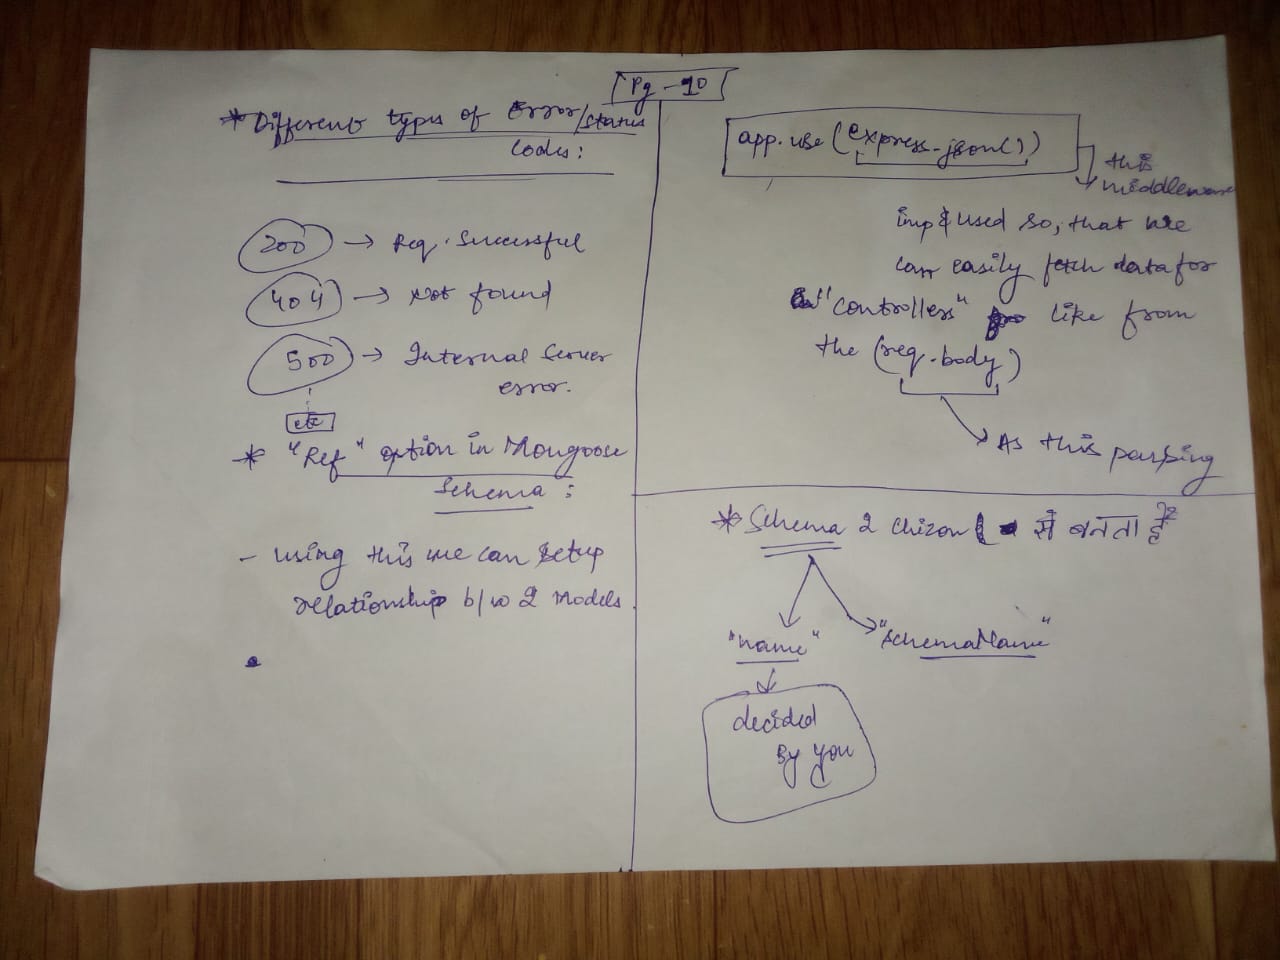 Pg - 10
* Different types of Error/Status
Codes:
200 → Req. Successful
404 → Not found
500 → Internal Server
error.
etc
* "Ref" option in Mongoose
Schema :
- using this we can setup
relationship b/w 2 Models.
app.use(express.json())
this
middleware
used so, that we
can easily fetch data for
"controllers" like from
the (req.body)
As this parsing
* Schema 2 chizon से बनता है
"name"
"schemaName"
decided
By you